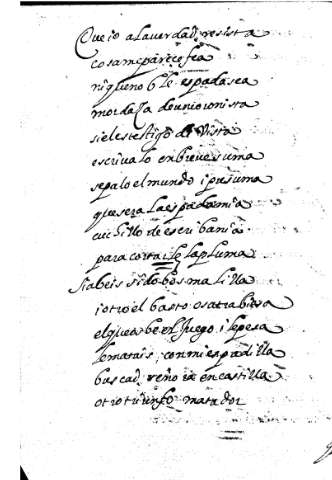 Que io a la verdad resista
cosa me parece fea
ni que no ble espada sea
mordaza de un io vi o nista
si el es testigo de vista
escriva lo en breve suma
sepalo el mundo i presuma
que sera la espada mia
cuchillo de escribania
para cortarle la pluma
Si abeis sido bos malilla
i otro el basto os atrabiesa
el que sabe el juego i le pesa
le matais con mi espadilla
buscad reino en castilla
otro triunfo matador